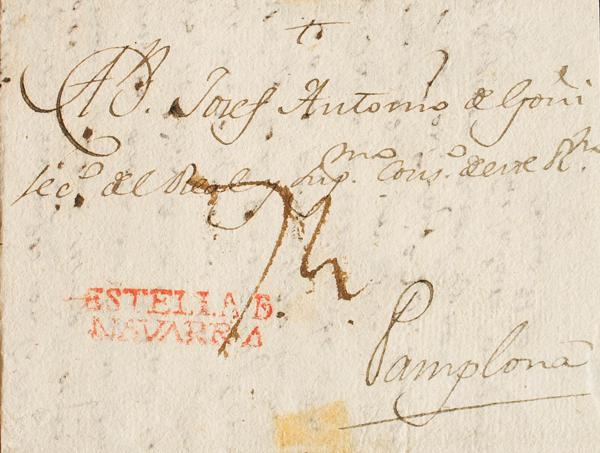 A D. Josef Antonio de Goñi
sec.º del Real y Sup.mo Cons.º de este R.no
ESTELLA B.
NAVARRA
Pamplona